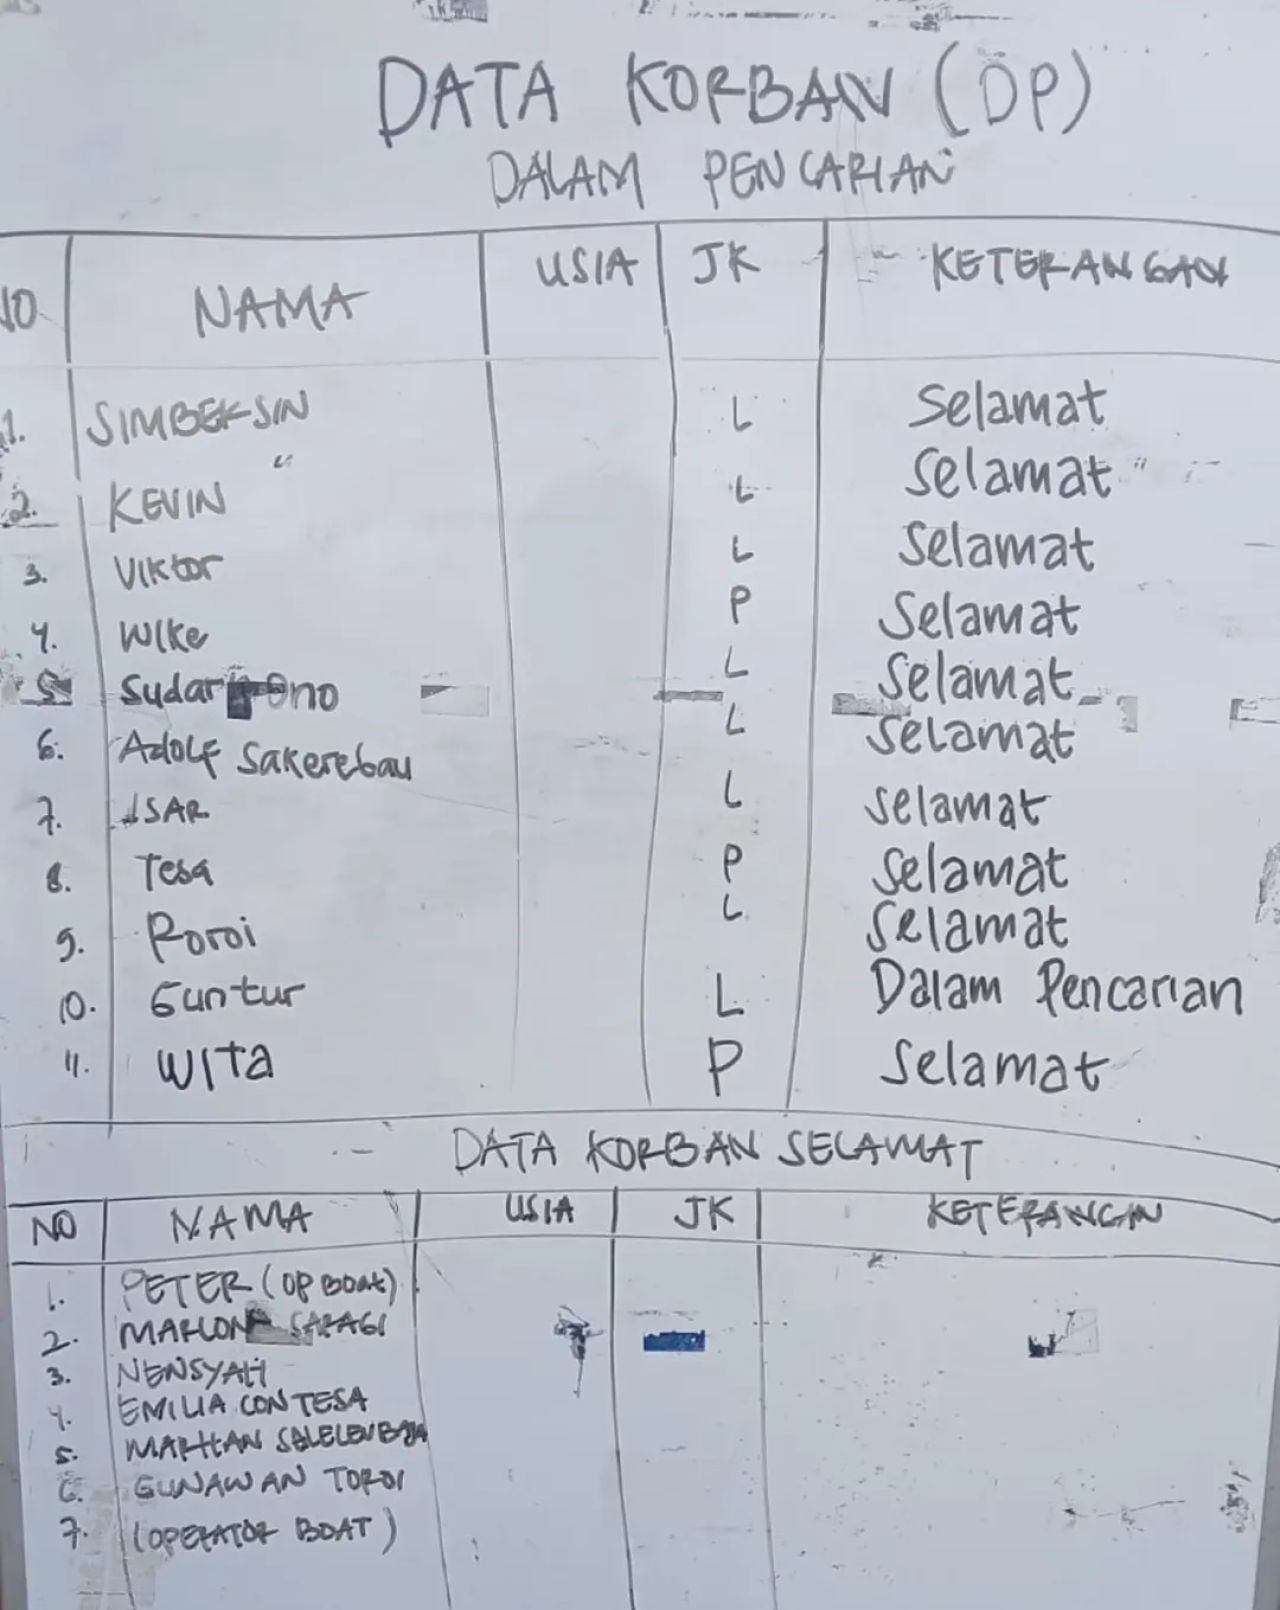 DATA KORBAN (DP)
DALAM PENCARIAN
NO NAMA USIA JK KETERANGAN
1. SIMBEKSIN L Selamat
2. KEVIN L Selamat
3. Viktor L Selamat
4. Wike P Selamat
5. Sudar ono L Selamat
6. Adolf Sakerebau L Selamat
7. ISAR L Selamat
8. Tesa P Selamat
9. Roroi L Selamat
10. Guntur L Dalam Pencarian
11. Wita P Selamat
DATA KORBAN SELAMAT
NO NAMA USIA JK KETERANGAN
1. PETER (OP BOAT)
2. MARLON SARAGI
3. NENSYAH
4. EMILIA CONTESA
5. MARHAN
6. GUNAWAN TOROI
7. (OPERATOR BOAT)